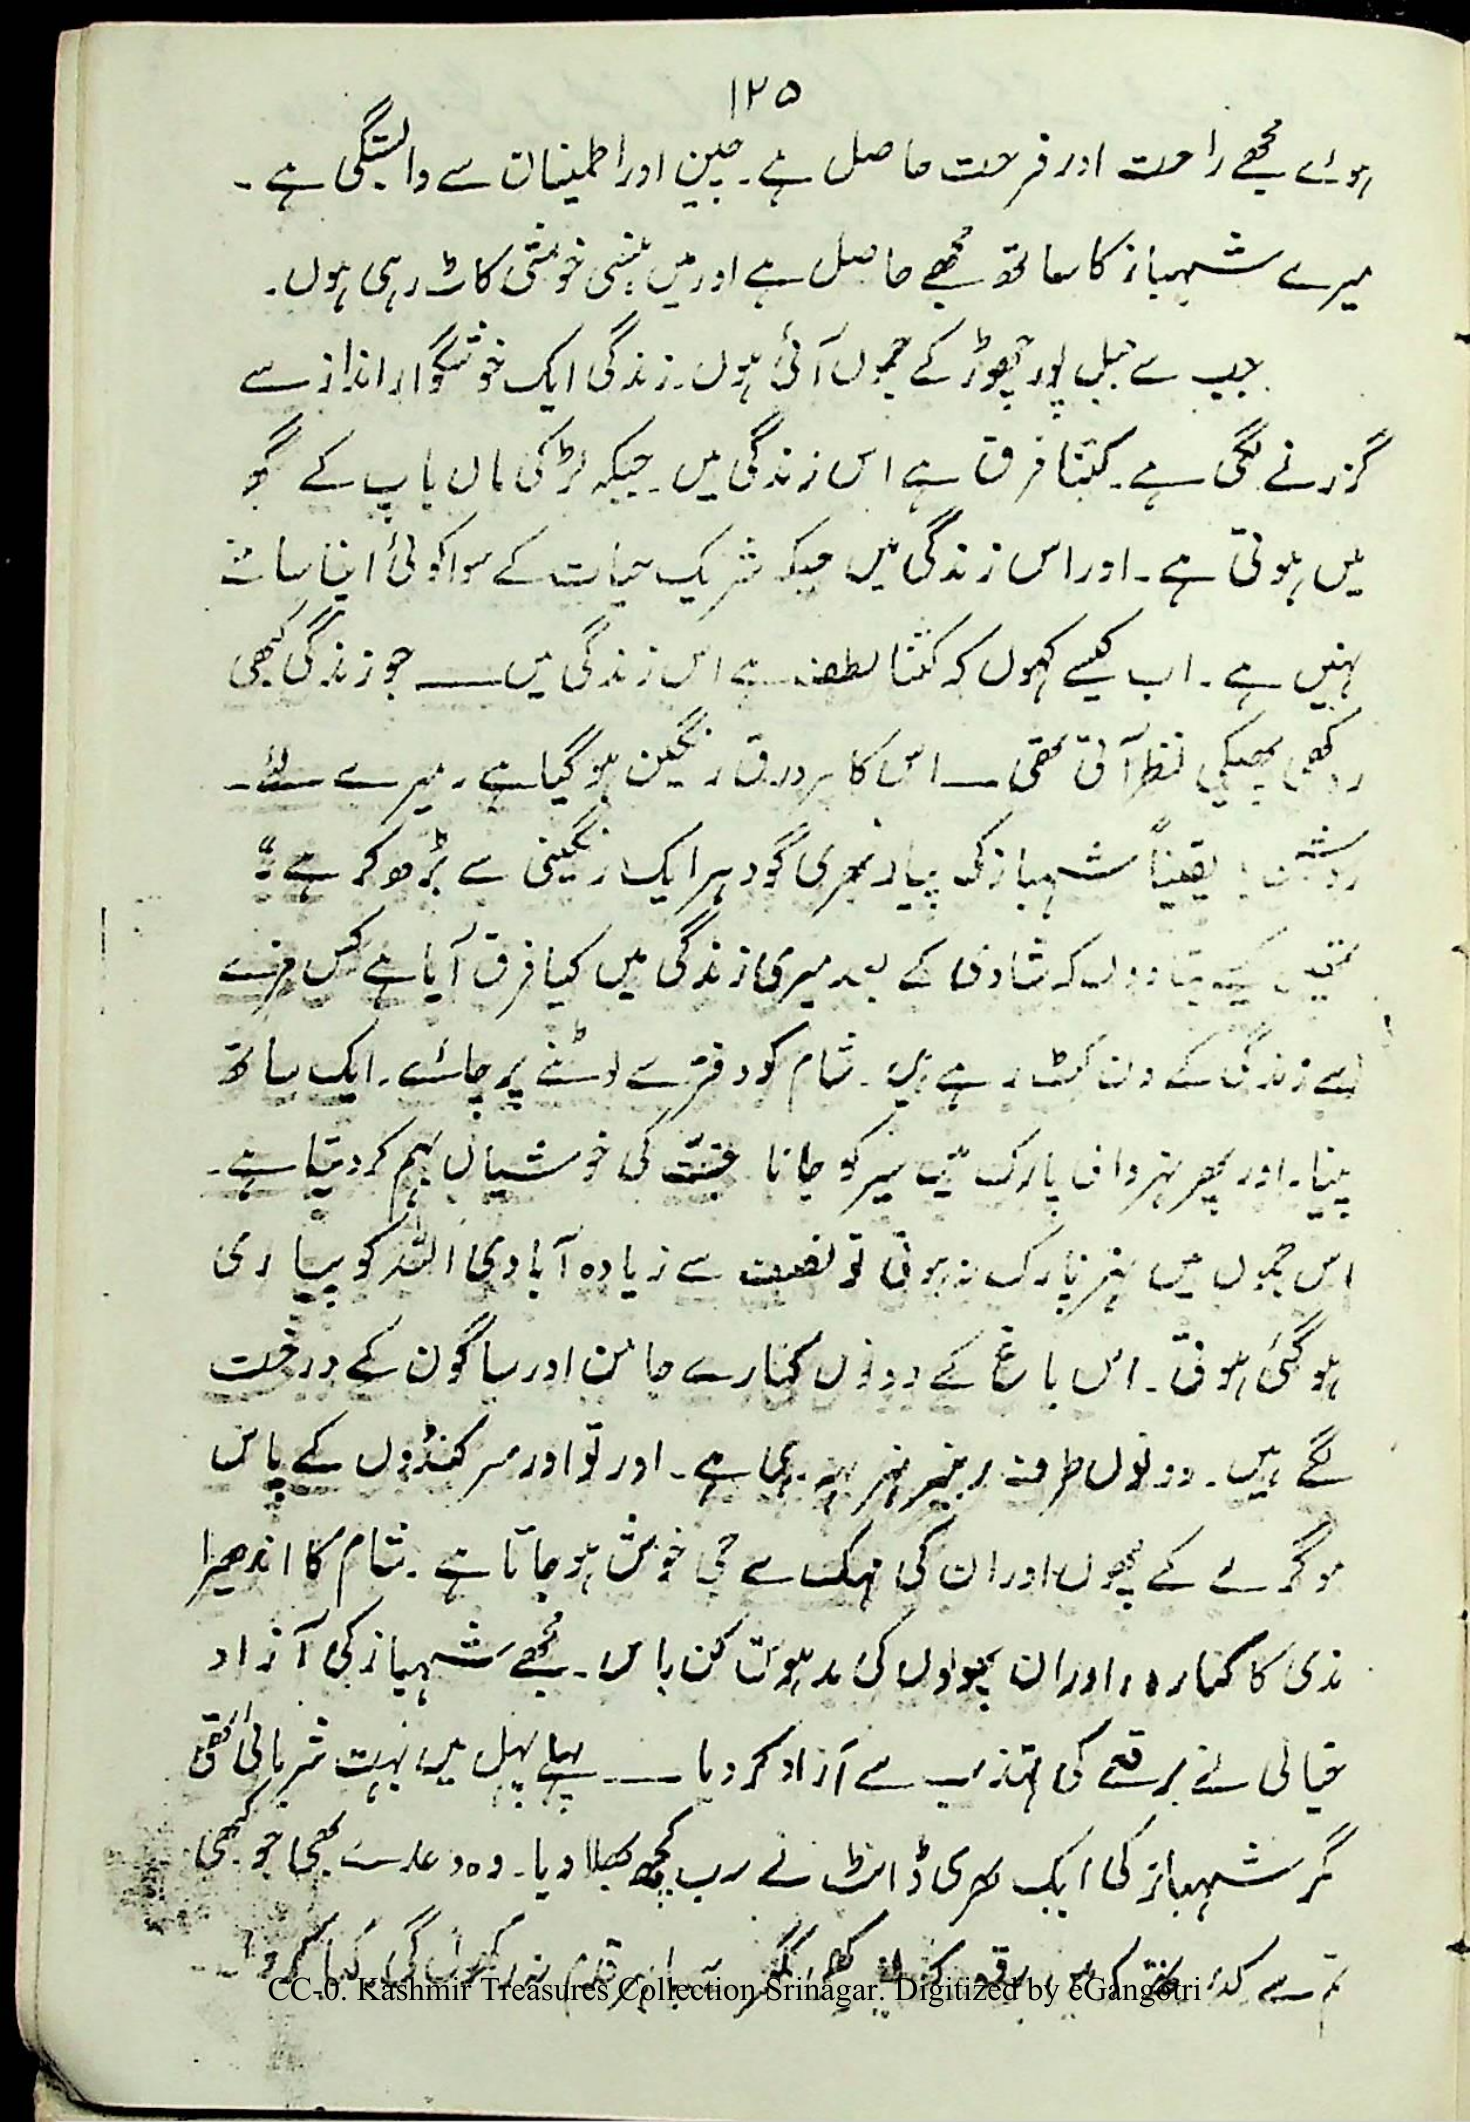 ۱۲۵
ہوئے مجھے راحت اور فرحت حاصل ہے۔ چین اور اطمینان سے وابستگی ہے۔
میرے شہباز کا ساتھ مجھے حاصل ہے اور میں ہنسی خوشی کاٹ رہی ہوں۔
جب سے جبل پور چھوڑ کے جموں آئی ہوں۔ زندگی ایک خوشگوار انداز سے
گزرنے لگی ہے۔ کتنا فرق ہے اس زندگی میں۔ جبکہ لڑکی ماں باپ کے گھر
میں ہوتی ہے۔ اور اس زندگی میں جبکہ شریک حیات کے سوا کوئی اپنا ساتھ
نہیں ہے۔ اب کیسے کہوں کہ کتنا لطف ہے اس زندگی میں ـــــ جو زندگی کبھی
روکھی پھیکی نظر آتی تھی ـــــ اس کا ہر ورق رنگین ہو گیا ہے۔ میرے لئے۔
یقیناً شہباز کی پیار بھری گود ہر ایک رنگینی سے بڑھ کر ہے"
تمہیں کیسے بتا دوں کہ شادی کے بعد میری زندگی میں کیا فرق آیا ہے کس مزے
سے زندگی کے دن کٹ رہے ہیں۔ شام کو دفتر سے لوٹنے پر چائے۔ ایک ساتھ
پینا۔ اور پھر نہر والی پارک میں سیر کو جانا جنّت کی خوشیاں بہم کر دیتا ہے۔
اس جموں میں نہر پارک نہ ہوتی تو نصف سے زیادہ آبادی اللہ کو پیاری
ہو گئی ہوتی۔ اس باغ کے دونوں کنارے جامن اور ساگون کے درخت
لگے ہیں۔ دونوں طرف نہر بہہ رہی ہے۔ اور تو اور سرکنڈوں کے پاس
موگرے کے پھول اور ان کی مہک سے جی خوش ہو جاتا ہے۔ شام کا اندھیرا
ندی کا کنارہ، اور ان پھولوں کی مدہوش کن باس۔ مجھے شہباز کی آزاد
خیالی نے برقعے کی تہذیب سے آزاد کر دیا ـــــ پہلے پہل میں بہت شرمائی تھی
مگر شہباز کی ایک ہری ڈانٹ نے سب کچھ بھلا دیا۔ وہ وعدے بھی جو کبھی
تم سے کئے تھے کہ میں
CC-0. Kashmir Treasures Collection Srinagar. Digitized by eGangotri